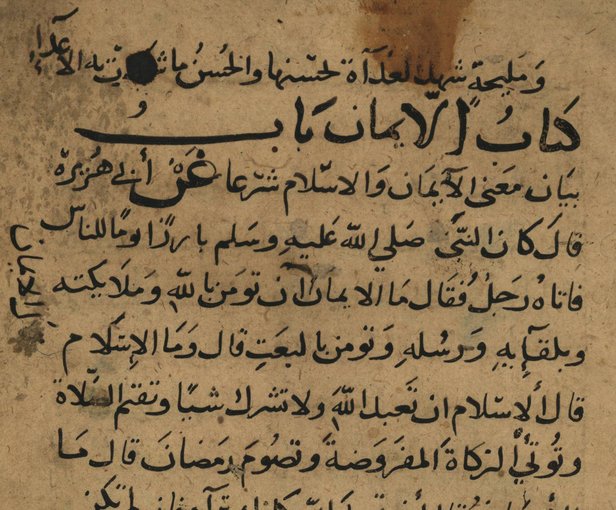 ومليحة شهدت لعداآة لحسنها والحسن ما شهدت به الاعدا
كتاب الايمان باب
بيان معنى الايمان والاسلام شرعا عن أبي هريرة
قال كان النبي صلي الله عليه وسلم بارزا يوما للناس
فاتاه رجل فقال ما الايمان ان تومن بالله وملايكته
وبلقآيه ورسله وتومن بالبعث قال وما الاسلام
قال الاسلام ان تعبد الله ولا تشرك شيا وتقيم الصلاة
وتوتي الزكاة المفروضة وتصوم رمضان قال ما